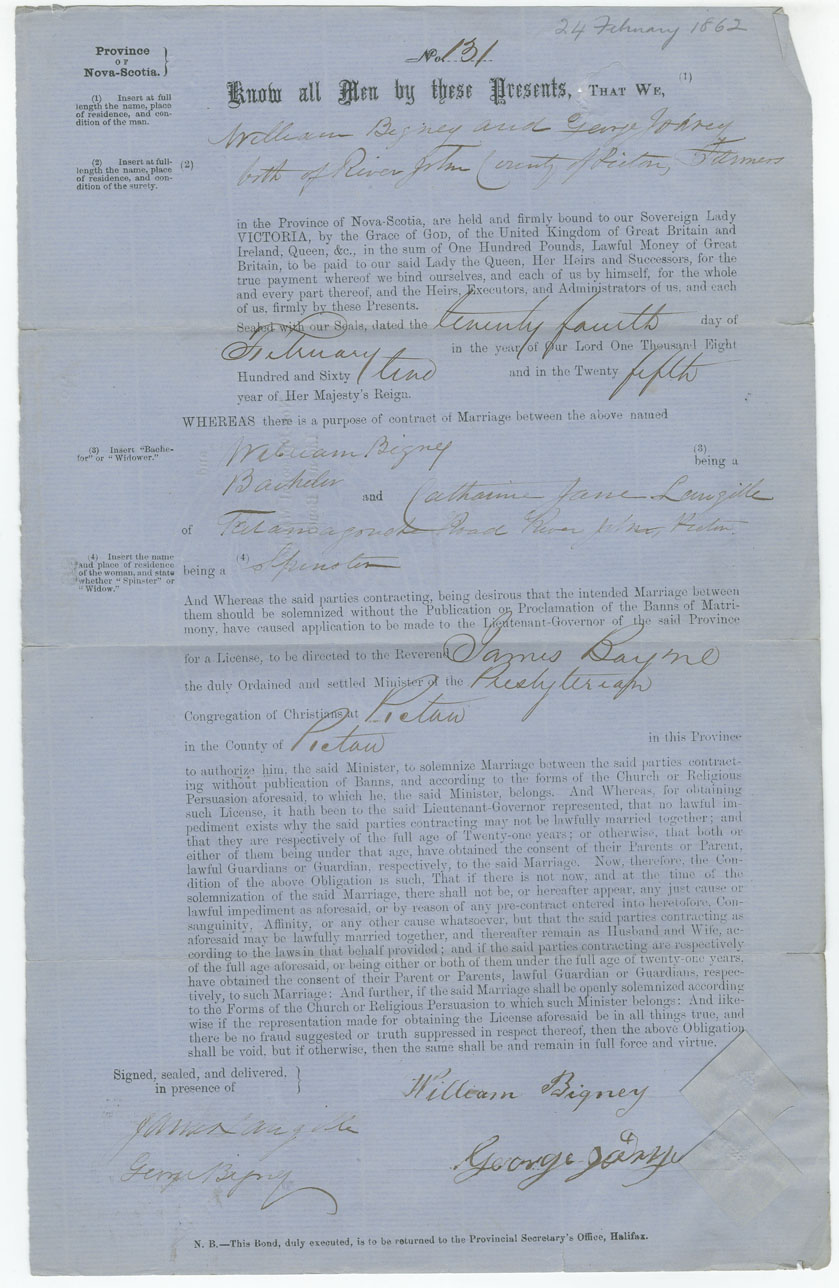 24 February 1862
Province
OF
Nova-Scotia.
No. 131
Know all Men by these Presents, THAT WE, (1)
(1) Insert at full
length the name, place
of residence, and con-
dition of the man.
William Bigney and George
(2) Insert at full-
length the name, place
of residence, and con-
dition of the surety.
(2) both of River John County of Pictou, Farmers
in the Province of Nova-Scotia, are held and firmly bound to our Sovereign Lady
VICTORIA, by the Grace of GOD, of the United Kingdom of Great Britain and
Ireland, Queen, &c., in the sum of One Hundred Pounds, Lawful Money of Great
Britain, to be paid to our said Lady the Queen, Her Heirs and Successors, for the
true payment whereof we bind ourselves, and each of us by himself, for the whole
and every part thereof, and the Heirs, Executors, and Administrators of us, and each
of us, firmly by these Presents.
Sealed with our Seals, dated the twenty fourth day of
February in the year of Our Lord One Thousand Eight
Hundred and Sixty two and in the Twenty fifth
year of Her Majesty's Reign.
WHEREAS there is a purpose of contract of Marriage between the above named
(3) Insert "Bache-
lor" or "Widower."
William Bigney (3) being a
Bachelor and Catharine Jane Langille
of Tatamagouche Road River John, Pictou
(4) Insert the name
and place of residence
of the woman, and state
whether "Spinster" or
"Widow."
being a (4) Spinster
And Whereas the said parties contracting, being desirous that the intended Marriage between
them should be solemnized without the Publication or Proclamation of the Banns of Matri-
mony, have caused application to be made to the Lieutenant-Governor of the said Province
for a License, to be directed to the Reverend James Bayne
the duly Ordained and settled Minister of the Presbyterian
Congregation of Christians at Pictou
in the County of Pictou in this Province
to authorize him, the said Minister, to solemnize Marriage between the said parties contract-
ing without publication of Banns, and according to the forms of the Church or Religious
Persuasion aforesaid, to which he, the said Minister, belongs. And Whereas, for obtaining
such License, it hath been to the said Lieutenant-Governor represented, that no lawful im-
pediment exists why the said parties contracting may not be lawfully married together; and
that they are respectively of the full age of Twenty-one years; or otherwise, that both or
either of them being under that age, have obtained the consent of their Parents or Parent,
lawful Guardians or Guardian, respectively, to the said Marriage. Now, therefore, the Con-
dition of the above Obligation is such, That if there is not now, and at the time of the
solemnization of the said Marriage, there shall not be, or hereafter appear, any just cause or
lawful impediment as aforesaid, or by reason of any pre-contract entered into heretofore, Con-
sanguinity, Affinity, or any other cause whatsoever, but that the said parties contracting as
aforesaid may be lawfully married together, and thereafter remain as Husband and Wife, ac-
cording to the laws in that behalf provided; and if the said parties contracting are respectively
of the full age aforesaid, or being either or both of them under the full age of twenty-one years,
have obtained the consent of their Parent or Parents, lawful Guardian or Guardians, respec-
tively, to such Marriage: And further, if the said Marriage shall be openly solemnized according
to the Forms of the Church or Religious Persuasion to which such Minister belongs: And like-
wise if the representation made for obtaining the License aforesaid be in all things true, and
there be no fraud suggested or truth suppressed in respect thereof, then the above Obligation
shall be void, but if otherwise, then the same shall be and remain in full force and virtue.
Signed, sealed, and delivered,
in presence of
William Bigney
James Langille
George
George Bigney
N. B.—This Bond, duly executed, is to be returned to the Provincial Secretary's Office, Halifax.